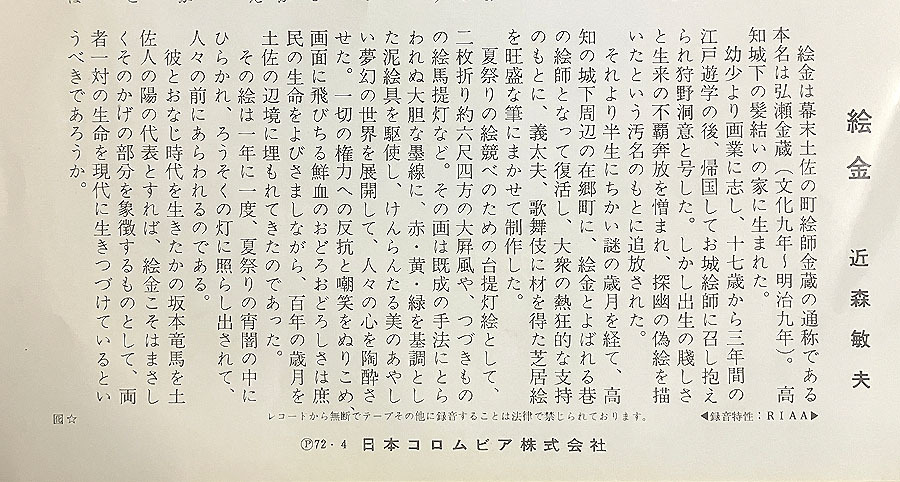 絵金 近森敏夫
絵金は幕末土佐の町絵師金蔵の通称である
本名は弘瀬金蔵(文化九年〜明治九年)。高
知城下の髪結いの家に生まれた。
幼少より画業に志し、十七歳から三年間の
江戸遊学の後、帰国してお城絵師に召し抱え
られ狩野洞意と号した。しかし出生の賤しさ
と生来の不覊奔放を憎まれ、探幽の偽絵を描
いたという汚名のもとに追放された。
それより半生にちかい謎の歳月を経て、高
知の城下周辺の在郷町に、絵金とよばれる巷
の絵師となって復活し、大衆の熱狂的な支持
のもとに、義太夫、歌舞伎に材を得た芝居絵
を旺盛な筆にまかせて制作した。
夏祭りの絵競べのための台提灯絵として、
二枚折り約六尺四方の大屛風や、つづきもの
の絵馬提灯など。その画は既成の手法にとら
われぬ大胆な墨線に、赤・黄・緑を基調とし
た泥絵具を駆使し、けんらんたる美のあやし
い夢幻の世界を展開して、人々の心を陶酔さ
せた。一切の権力への反抗と嘲笑をぬりこめ、
画面に飛びちる鮮血のおどろおどろしさは庶
民の生命をよびさましながら、百年の歳月を
土佐の辺境に埋もれてきたのであった。
その絵は一年に一度、夏祭りの宵闇の中に
ひらかれ、ろうそくの灯に照らし出されて、
人々の前にあらわれるのである。
彼とおなじ時代を生きたかの坂本竜馬を土
佐人の陽の代表とすれば、絵金こそはまさし
くそのかげの部分を象徴するものとして、両
者一対の生命を現代に生きつづけているとい
うべきであろうか。
◀録音特性:RIAA▶
レコードから無断でテープその他に録音することは法律で禁じられております。
☆
Ⓟ72・4 日本コロムビア株式会社